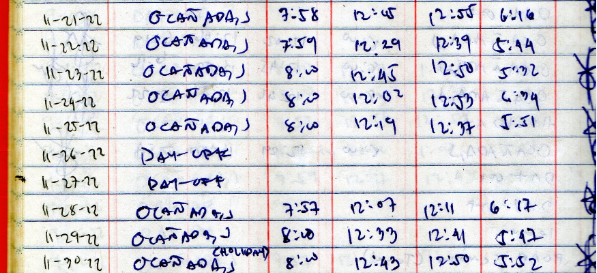 11-21-22 OCAÑADA, J 7:58 12:05 12:55 6:16
11-22-22 OCAÑADA, J 7:59 12:29 12:39 5:44
11-23-22 OCAÑADA, J 8:00 12:45 12:50 5:32
11-24-22 OCAÑADA, J 8:00 12:02 12:53 6:34
11-25-22 OCAÑADA, J 8:00 12:19 12:37 5:51
11-26-22 DAY-OFF
11-27-22 DAY-OFF
11-28-12 OCAÑADA, J 7:57 12:07 12:11 6:17
11-29-22 OCAÑADA, J 8:00 12:33 12:41 5:47
11-30-22 OCAÑADA, J (HOLIDAY) 8:00 12:43 12:50 5:52